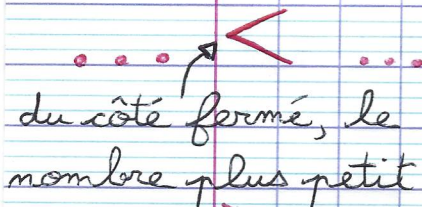 ... < ...
du côté fermé, le
nombre plus petit